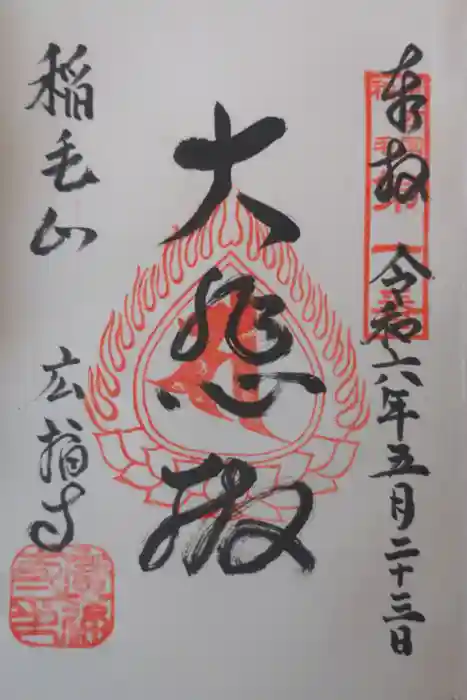 奉拝 令和六年五月二十三日
大悲殿
稲毛山 広福寺